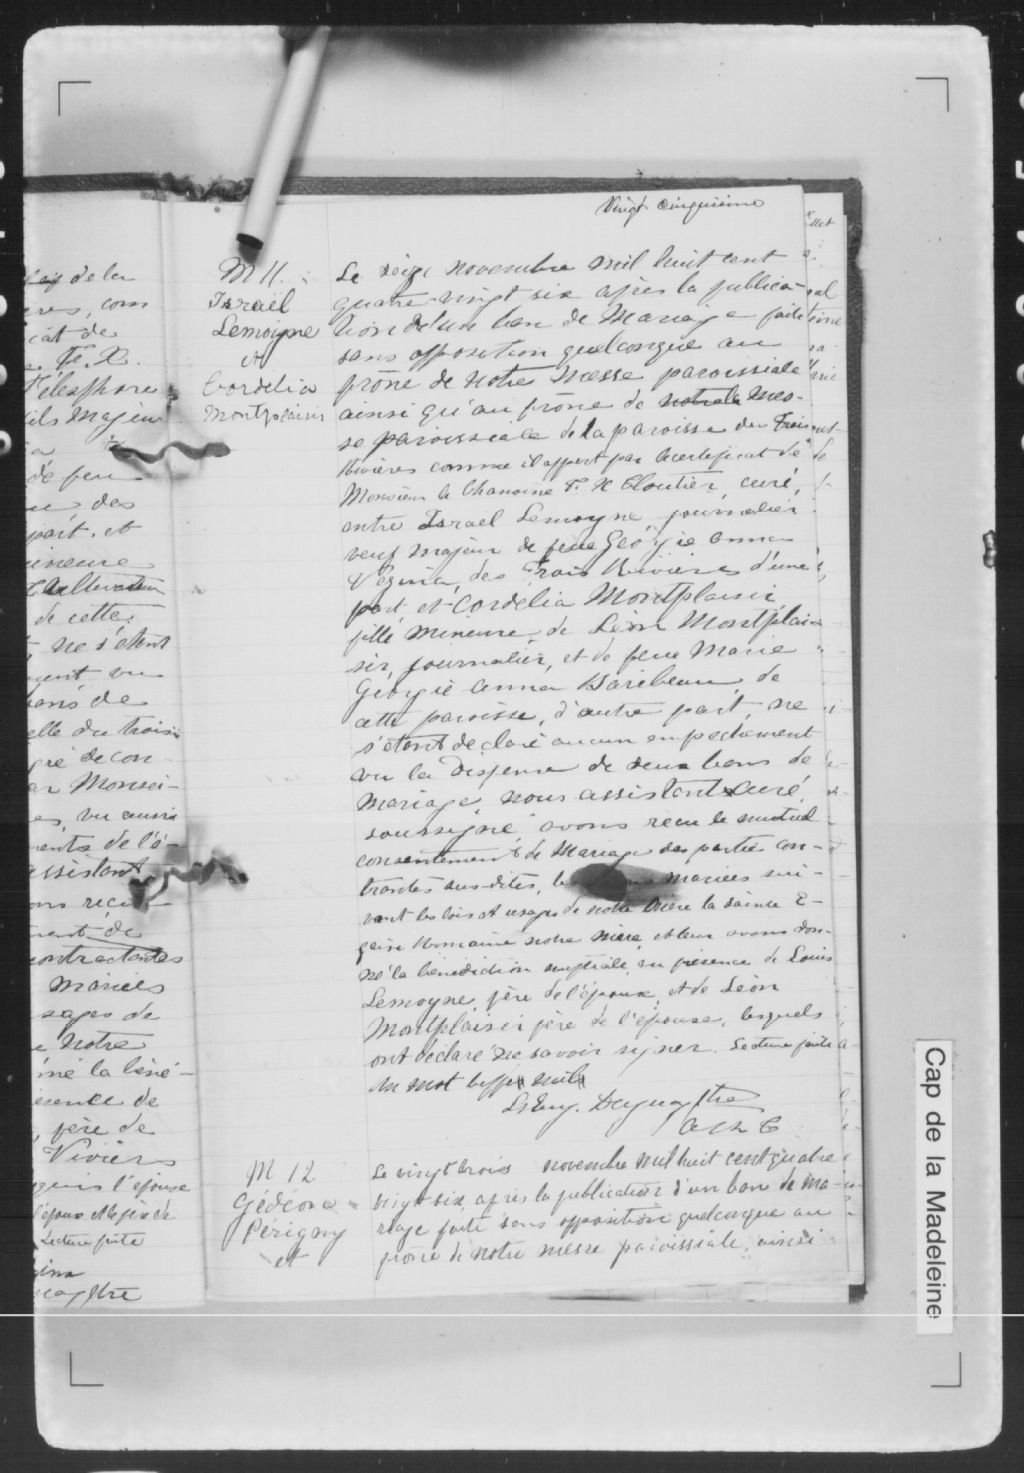 Vingt cinquième
M 11.
Israël
Lemoigne
et
Cordélia
Montplaisir
Le seize novembre mil huit cent
quatre-vingt six après la publica-
tion d'un ban de Mariage faite
sans opposition quelconque au
prône de notre Messe paroissiale
ainsi qu'au prône de la Mes-
se paroissiale de la paroisse des Trois
Rivières comme il appert par le certificat de
Monsieur le Chanoine F. X Cloutier, curé,
entre Israel Lemoyne, journalier
veuf majeur de feue Georgie Anna
Végina, des Trois Rivières d'une
part, et Cordélia Montplaisir
fille mineure de Léon Montplai-
sir, journalier, et de feue Marie
Georgie Anna Baribeau, de
cette paroisse, d'autre part, ne
s'étant déclaré aucun empêchement
vu la Dispense de deux bans de
mariage, nous assistant curé,
soussigné, avons reçu le mutuel
consentement de Mariage des parties con-
tractantes sus-dites, les mariées sui-
vant les lois et usages de notre Mère la Sainte E-
glise Romaine notre mère, et leur avons don-
né la bénédiction nuptiale en présence de Louis
Lemoyne, père de l'époux, et de Léon
Montplaisir père de l'épouse, lesquels
ont déclaré ne savoir signer. Lecture faite
un mot biffé nul
M 12
Gédéon
Périgny
et
Le vingt trois novembre mil huit cent quatre
vingt-six, après la publication d'un ban de ma-
riage faite sans opposition quelconque au
prône de notre messe paroissiale, ainsi
de la
Télesphore
fils majeur
de feu
des
part, et
mineure
Cultivateur
de cette
ne s'étant
vu
bans de
elle du trois-
de con-
Monsei-
vu aussi
de l'é-
assistant
reçu
de
contractantes
mariées
usages de
Notre
la béné-
présence de
père de
Viviers
l'épouse
Lecture faite
Cap de la Madeleine